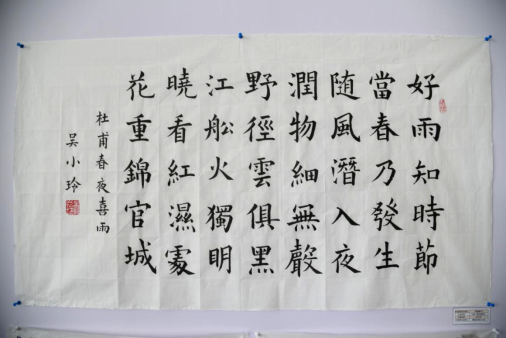 好雨知時節
當春乃發生
随風潛入夜
潤物細無聲
野徑雲俱黑
江船火獨明
曉看紅濕處
花重錦官城
杜甫春夜喜雨
吴小玲